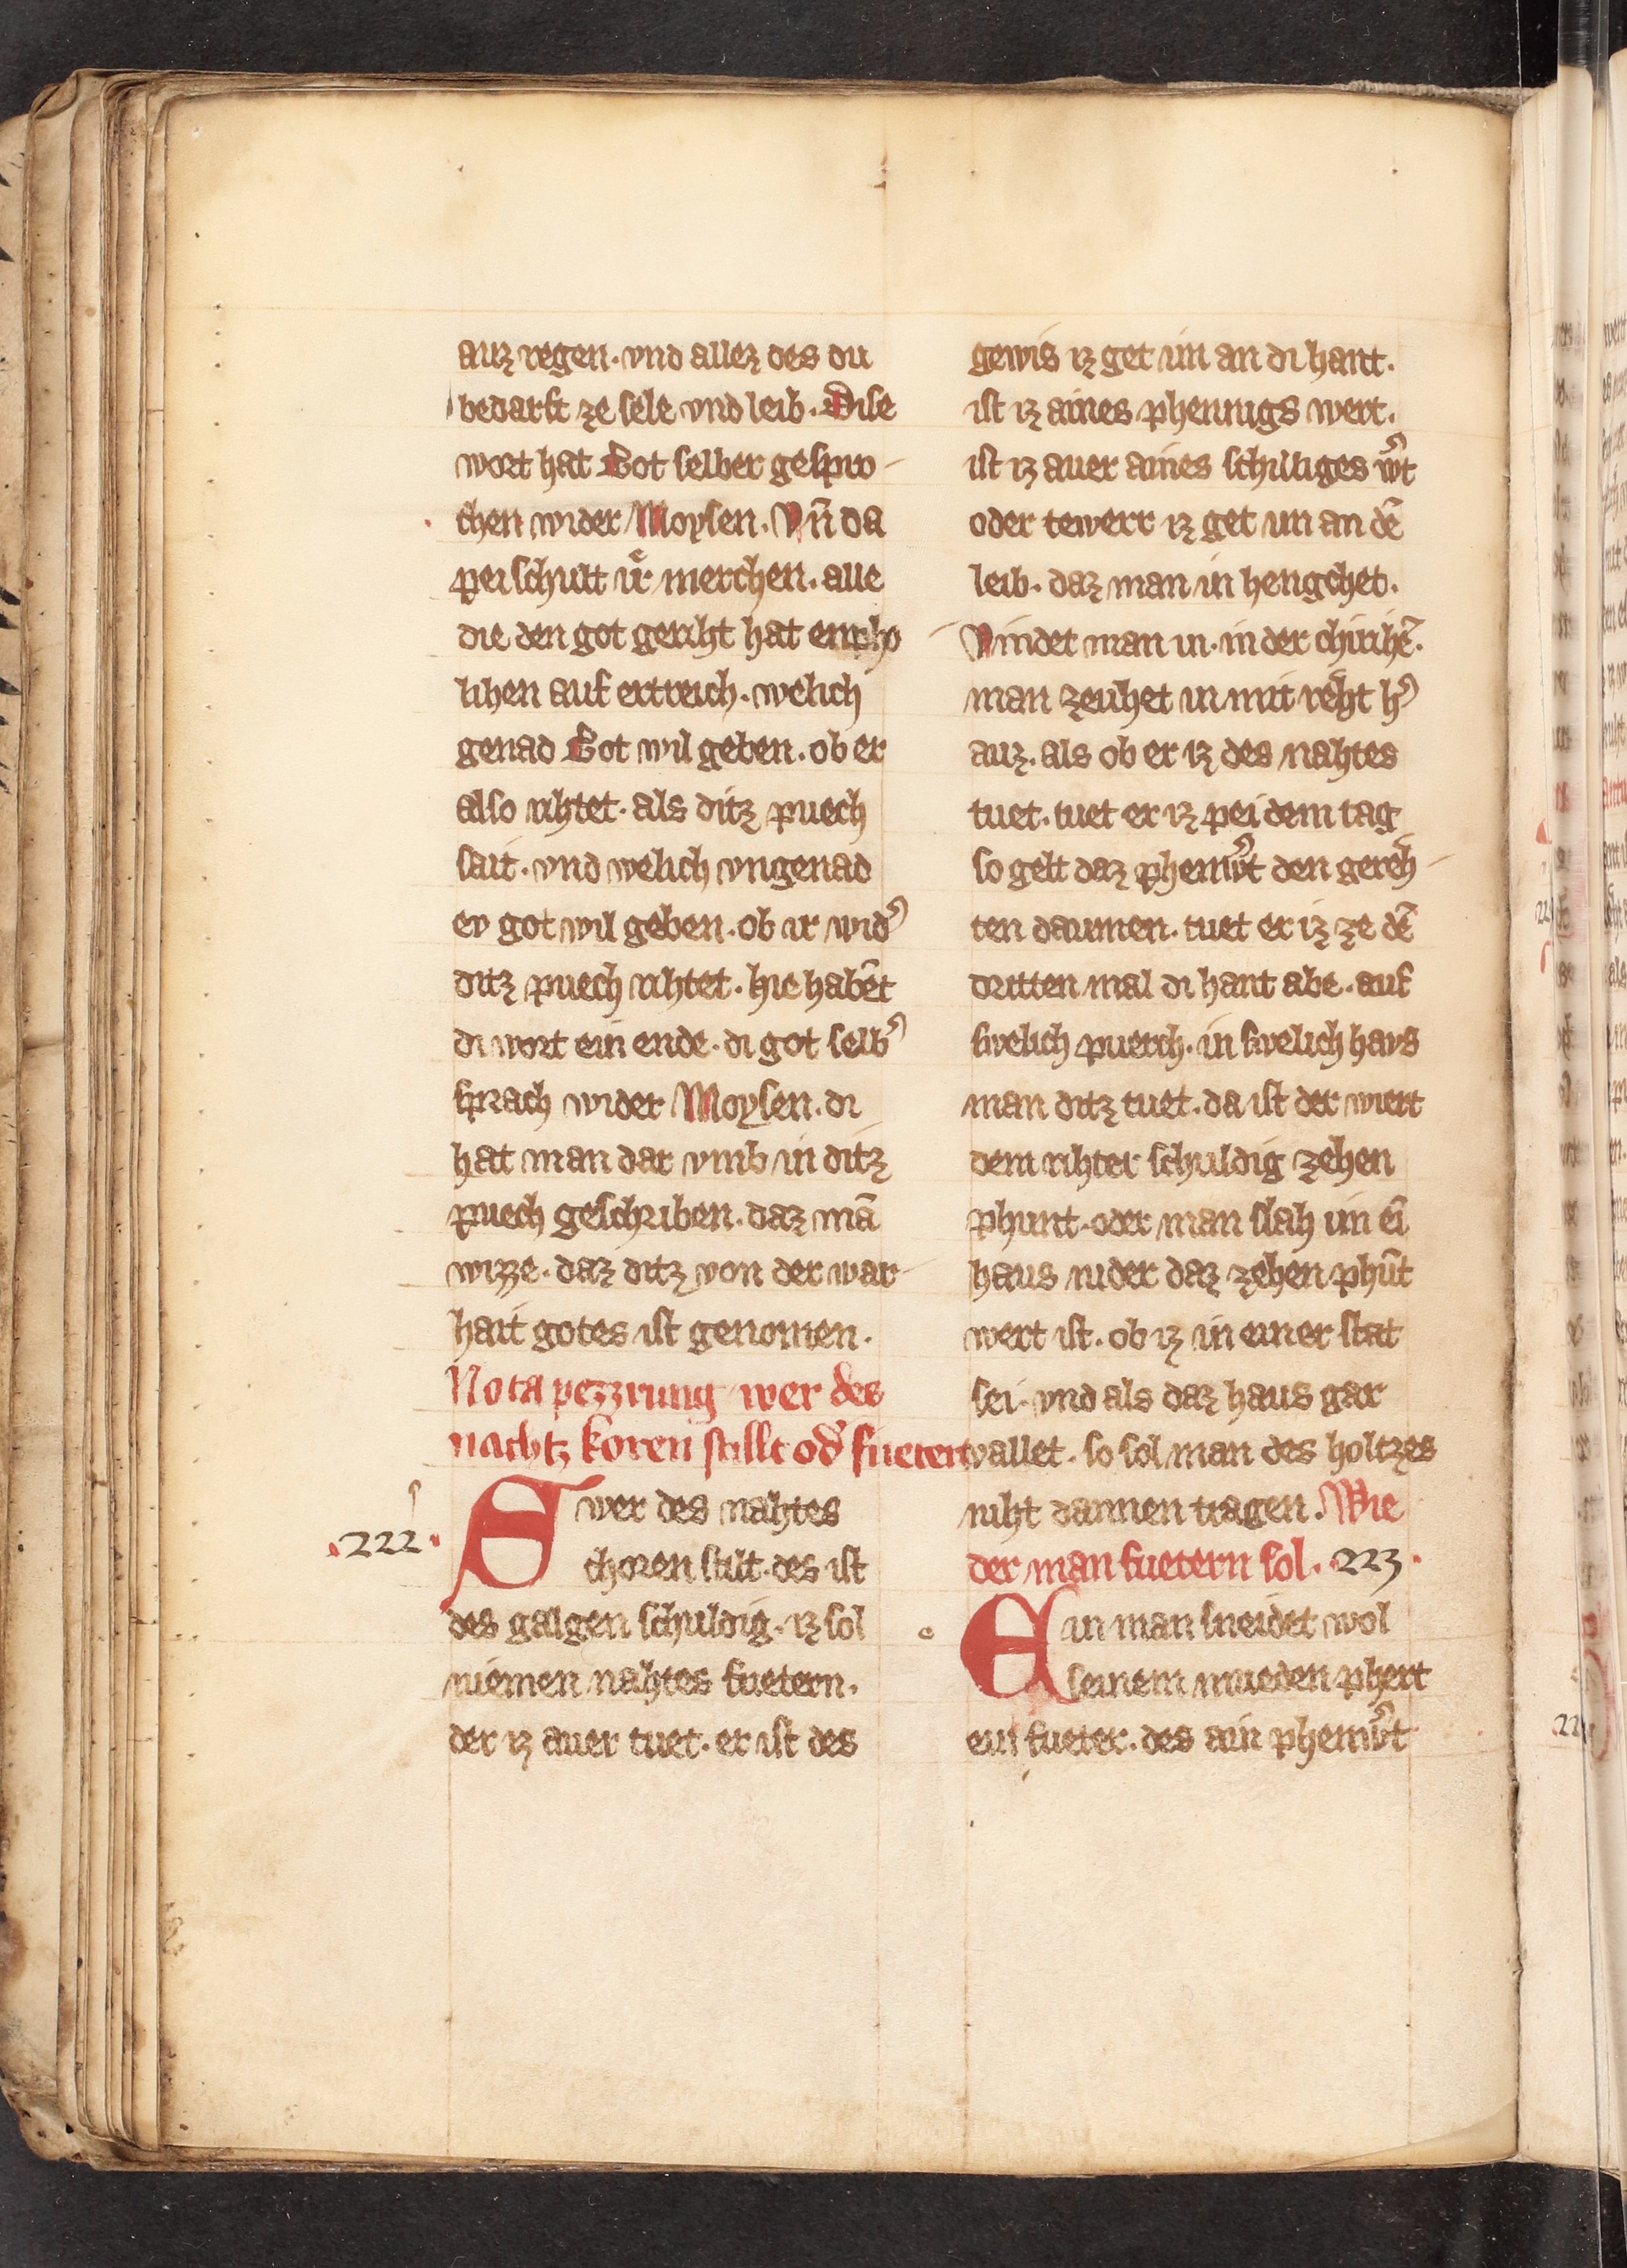 auz regen. vnd allez des du
bedarft ze sele vnd leib. Dise
wort hat Got selber gespro-
chen wider Moysen. Vñ da
pei schult ir merchen. alle
die den got geriht hat enpho
lihen auf ertreich. welich
genad Got wil geben. ob er
also rihtet. als ditz puech
sait. vnd welich vngenad
ev got wil geben. ob ir wid᾽
ditz puech rihtet. hie habēt
di wort ein ende. di got selb᾽
sprach wider Moysen. di
hat man dar vmb in ditz
puech geschriben. daz mā
wizze. daz ditz von der war-
hait gotes ist genomen.
Nota pezzrung wer des
nachtz koren stillt od᾽ fuetert
222.
Swer des nahtes
choren stilt. des ist
des galgen schuldig. iz sol
niemen nahtes fuetern.
der iz auer tuet. er ist des
gewis iz get im an di hant.
ist iz aines phennigs wert.
ist iz auer aines schilliges w᾽t
oder tewerr iz get im an dē
leib. daz man in hengchet.
Vindet man in. in der chirihē.
man zeuhet in mit reht h᾽
auz. als ob er iz des nahtes
tuet. tuet er iz pei dem tag
so gelt daz phenw᾽t den gereh-
ten daumen. tuet er iz ze dē
dritten mal di hant abe. auf
swelich puerch. in swelich havs
man ditz tuet. da ist der wiert
dem rihter schuldig zehen
phunt. oder man slah im ei̅
haus nider daz zehen phūt
wert ist. ob iz in einer stat
sei. vnd als daz haus gar
vallet. so sol man des holtzes
niht dannen tragen. Wie
der man fuetern sol. 223.
Ain man sneidet wol
seinem mueden phert
ein fueter. des ain phenw᾽t